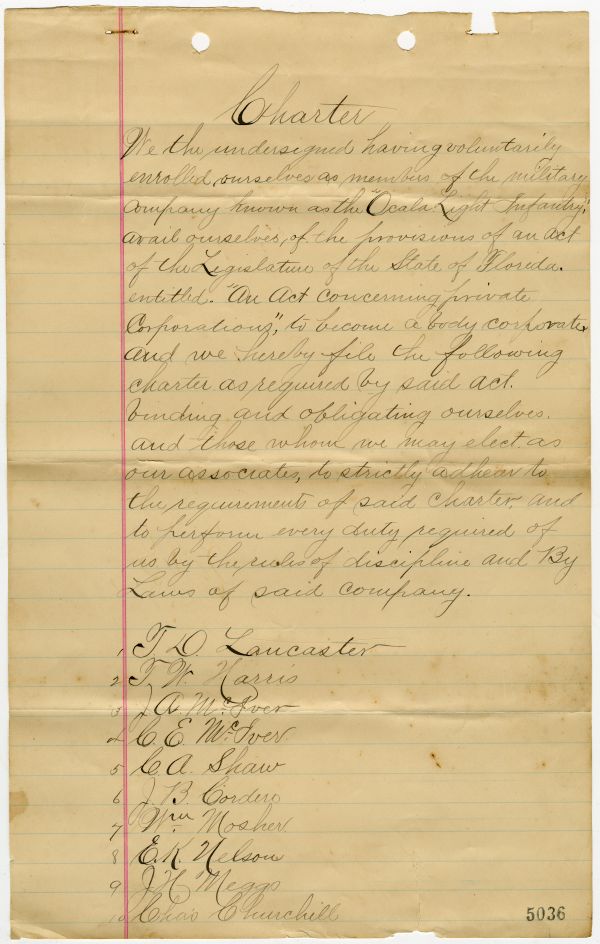 Charter
We the undersigned having voluntarily
enrolled, ourselves as members of the military
company known as the "Ocala Light Infantry",
avail ourselves, of the provisions of an act
of the Legislature of the State of Floreda.
entitled. "An Act concerning private
Corporations", to become a body corporate,
and we hereby file the following
charter as required by said act.
binding and obligating ourselves.
and those whom we may elect as
our associates, to strictly adhear to
the requirements of said charter, and
to perform every duty required of
us by the rules of discipline and By
Laws of said company.
1 T. D. Lancaster
2 T. W. Harris
3 J. A. McIver
4 C. E. McIver
5 C. A. Shaw
6 J. B. Cordero
7 Wm Mosher
8 E. K. Nelson
9 J. H. Meggs
10 Chas Churchill
5036